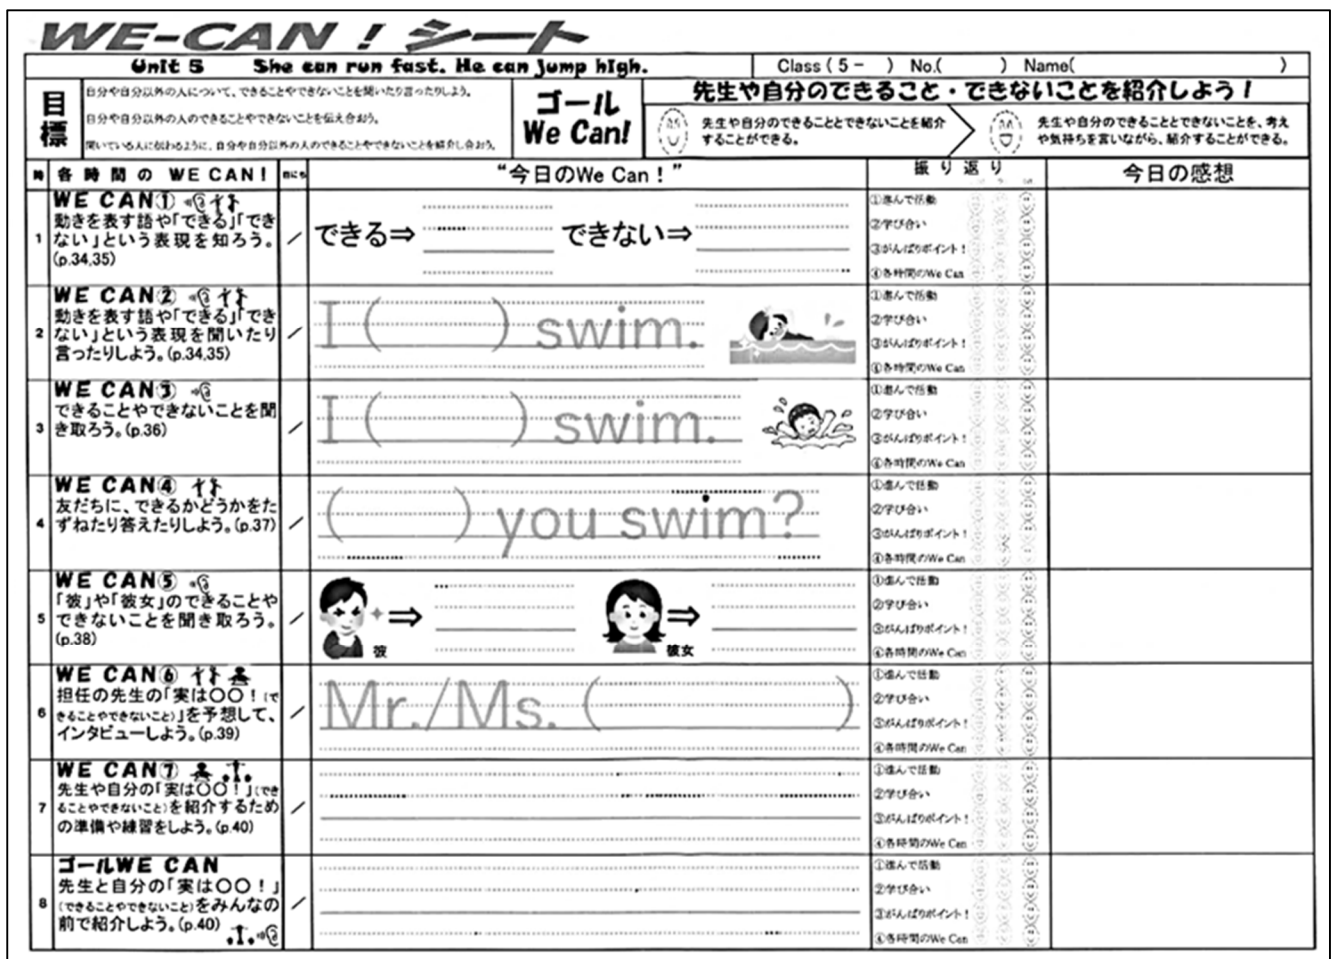 WE-CAN！シート
Unit 5 She can run fast. He can jump high.
Class ( 5 - ) No.( ) Name( )
目標
自分や自分以外の人について、できることやできないことを聞いたり言ったりしよう。
自分や自分以外の人のできることやできないことを伝え合おう。
聞いている人に伝わるように、自分や自分以外の人のできることやできないことを紹介し合おう。
ゴール
We Can!
先生や自分のできること・できないことを紹介しよう！
先生や自分のできることとできないことを紹介
することができる。
先生や自分のできることとできないことを、考え
や気持ちを言いながら、紹介することができる。
時 各時間の WE CAN! 日にち “今日のWe Can！” 振り返り 今日の感想
1
WE CAN①
動きを表す語や「できる」「でき
ない」という表現を知ろう。
(p.34,35)
/
できる⇒ できない⇒
①進んで活動
②学び合い
③がんばりポイント！
④各時間のWe Can
2
WE CAN②
動きを表す語や「できる」「でき
ない」という表現を聞いたり
言ったりしよう。(p.34,35)
/
I ( ) swim.
①進んで活動
②学び合い
③がんばりポイント！
④各時間のWe Can
3
WE CAN③
できることやできないことを聞
き取ろう。(p.36)
/
I ( ) swim.
①進んで活動
②学び合い
③がんばりポイント！
④各時間のWe Can
4
WE CAN④
友だちに、できるかどうかをた
ずねたり答えたりしよう。(p.37)
/
( ) you swim?
①進んで活動
②学び合い
③がんばりポイント！
④各時間のWe Can
5
WE CAN⑤
「彼」や「彼女」のできることや
できないことを聞き取ろう。
(p.38)
/
⇒ 彼 ⇒ 彼女
①進んで活動
②学び合い
③がんばりポイント！
④各時間のWe Can
6
WE CAN⑥
担任の先生の「実は〇〇！(で
きることやできないこと)」を予想して、
インタビューしよう。(p.39)
/
Mr./Ms. ( )
①進んで活動
②学び合い
③がんばりポイント！
④各時間のWe Can
7
WE CAN⑦
先生や自分の「実は〇〇！」(でき
ることやできないこと)を紹介するため
の準備や練習をしよう。(p.40)
/
①進んで活動
②学び合い
③がんばりポイント！
④各時間のWe Can
8
ゴールWE CAN
先生と自分の「実は〇〇！」
(できることやできないこと)をみんなの
前で紹介しよう。(p.40)
/
①進んで活動
②学び合い
③がんばりポイント！
④各時間のWe Can